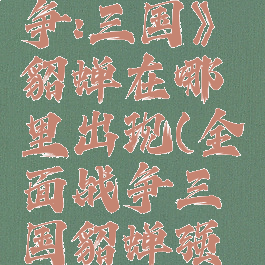 争:三国》
貂蝉在哪
里出现(全
面战争三
国貂蝉强